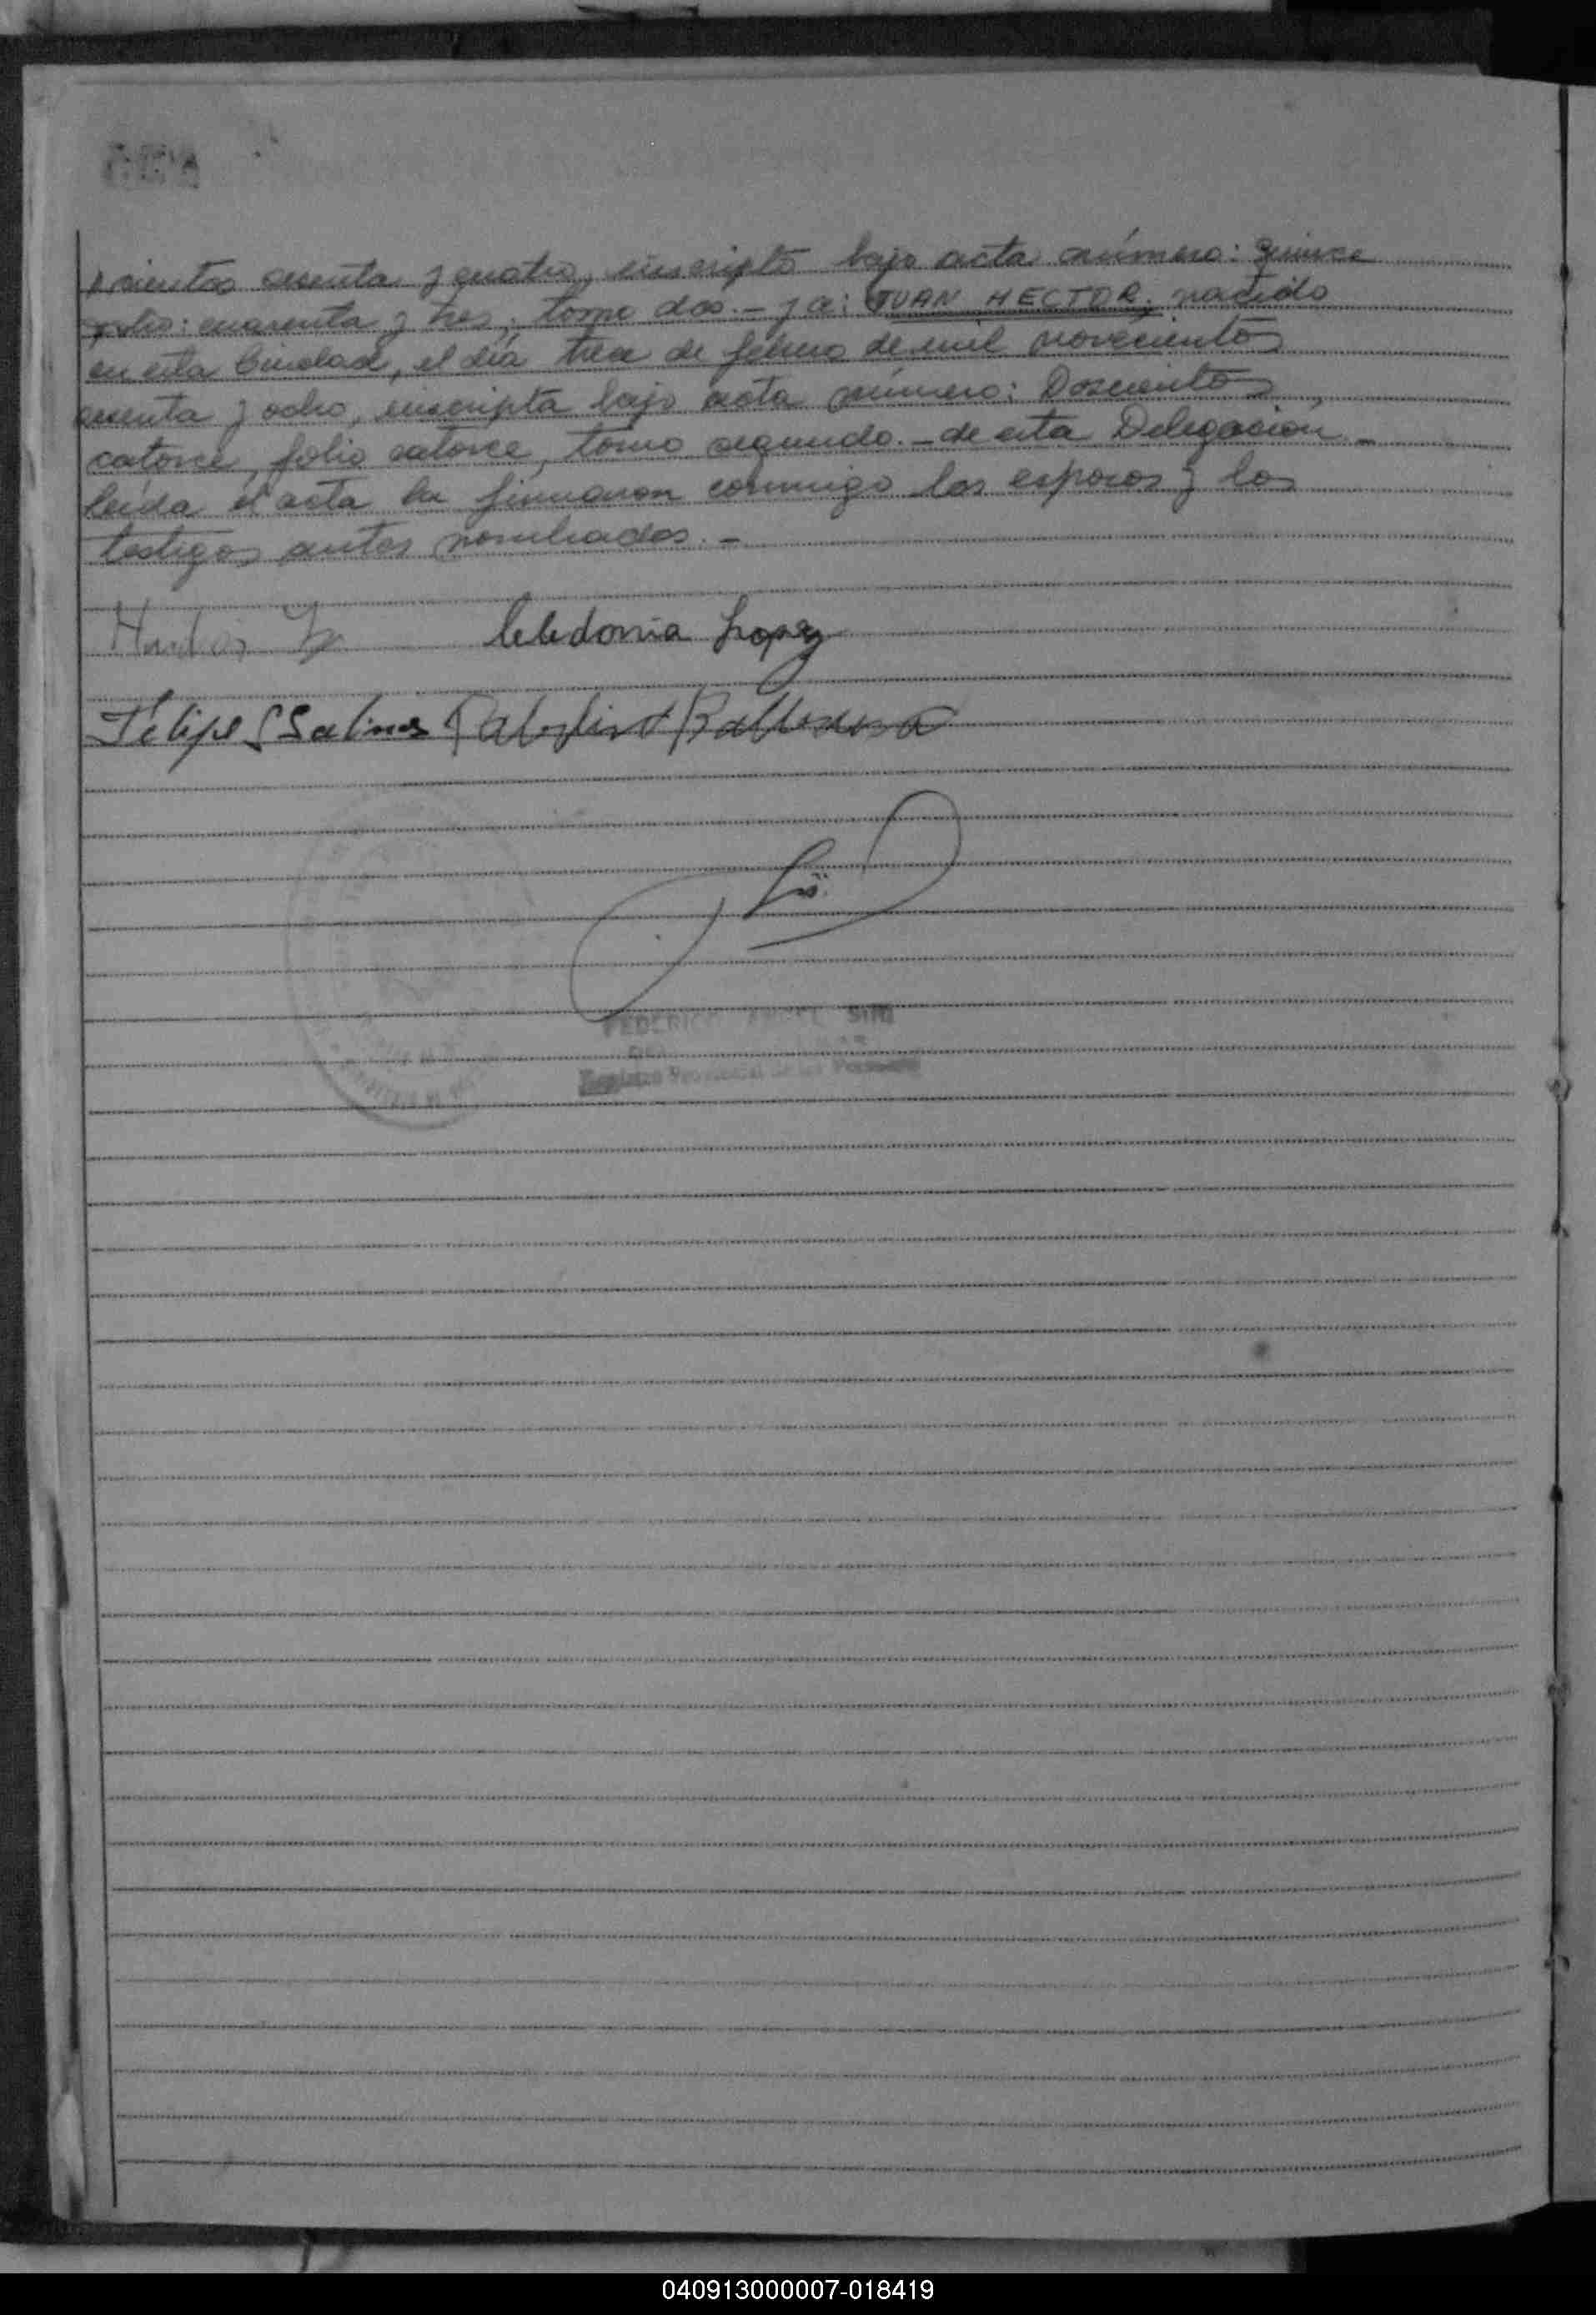 cientos sesenta y cuatro, inscripto bajo acta número: Quince
folio: cuarenta y tres, tomo dos.- y a: JUAN HECTOR, nacido
en esta Ciudad, el día trece de febrero de mil novecientos
sesenta y ocho, inscripta bajo acta número: Doscientos
catorce, folio catorce, tomo segundo.- de esta Delegación.-
leída el acta la firmaron conmigo los esposos y los
testigos antes nombrados.-
Celedonia Lopez
Felipe S Salinas
FEDERICO ANGEL
Registro Provincial de las Personas
040913000007-018419